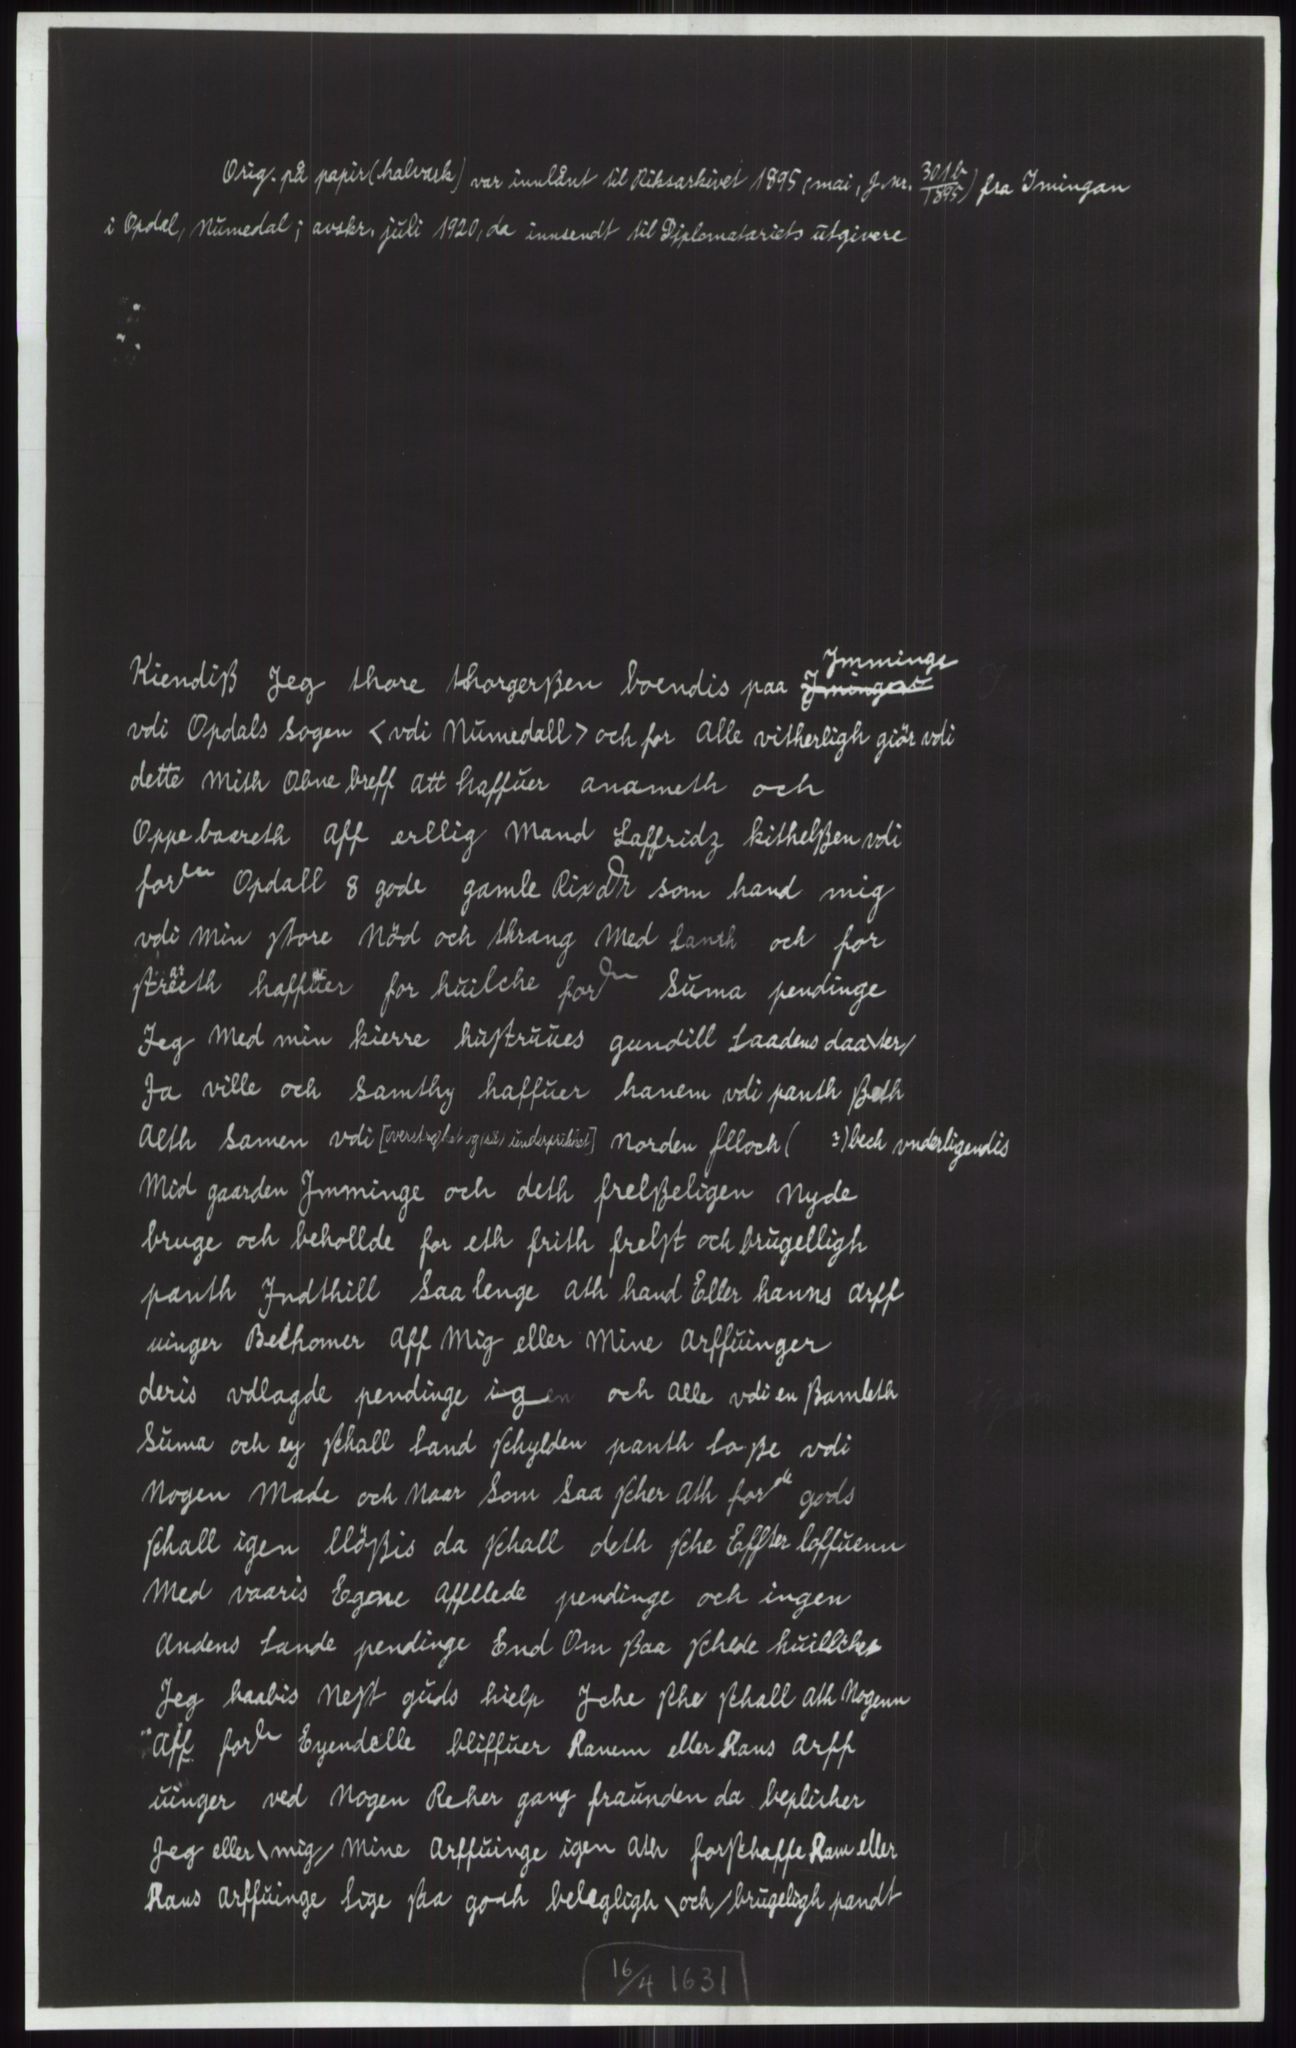 Orig. på papir (halvark) var innlånt til Riksarkivet 1895 (mai, J. nr. 301b/1895) fra Imingan
i Opdal, Numedal; avskr. juli 1920, da innsendt til Diplomatariets utgivere
Jmminge
Kiendiß Jeg thore thorgerßen boendis paa
vdi Opdals sogen <vdi Numedall> och for Alle vitherligh giör vdi
dette Mith Obne breff Att haffuer anameth och
Oppebaareth Aff erllig Mand Laffridz kithelßen vdi
forden Opdall 8 gode gamle Rixdlr som hand mig
vdi Min store Nöd och thrang Med Lanth och for
haffuer for huilche forden Suma pendinge
Jeg Med min kierre hustruues gundill Laadens daa\ter/
Ja ville och Samthy haffuer hanem vdi panth ßeth
Alth Samen vdi [overstrøket og så underprikket] norden flloch( ?)bech vnderligendis
Mid gaarden Jmminge och deth frelßeligen Nyde
bruge och behollde for eth frith frelst och brugelligh
panth Jndthill Saa lenge Ath hand Eller hanns Arff
uinger Bekomer Aff Mig eller Mine Arffuinger
deris vdlagde pendinge igen och Alle vdi en ßamleth
Suma och ey schall Land schylden panth loße vdi
Nogen Made och Naar Som Saa scher Ath forde gods
schall igen llößis da schall deth sche Effter loffuenn
Med vaaris Egene Affllede pendinge och ingen
Andens Lande pendinge End Om ßaa schede huilliche
Jeg haabis Nest guds hielp Jche sche schall Ath Nogenn
Aff forn Eyendelle bliffuer Hanem eller Hans Arff
uinger ved Nogen Recher gang fraunden da beplicher
Jeg eller \mig/ Mine Arffuinge igen Ath forschaffe Ham eller
Hans Arffuinge lige saa godh belegligh \och/ brugeligh pandt
16/4 1631